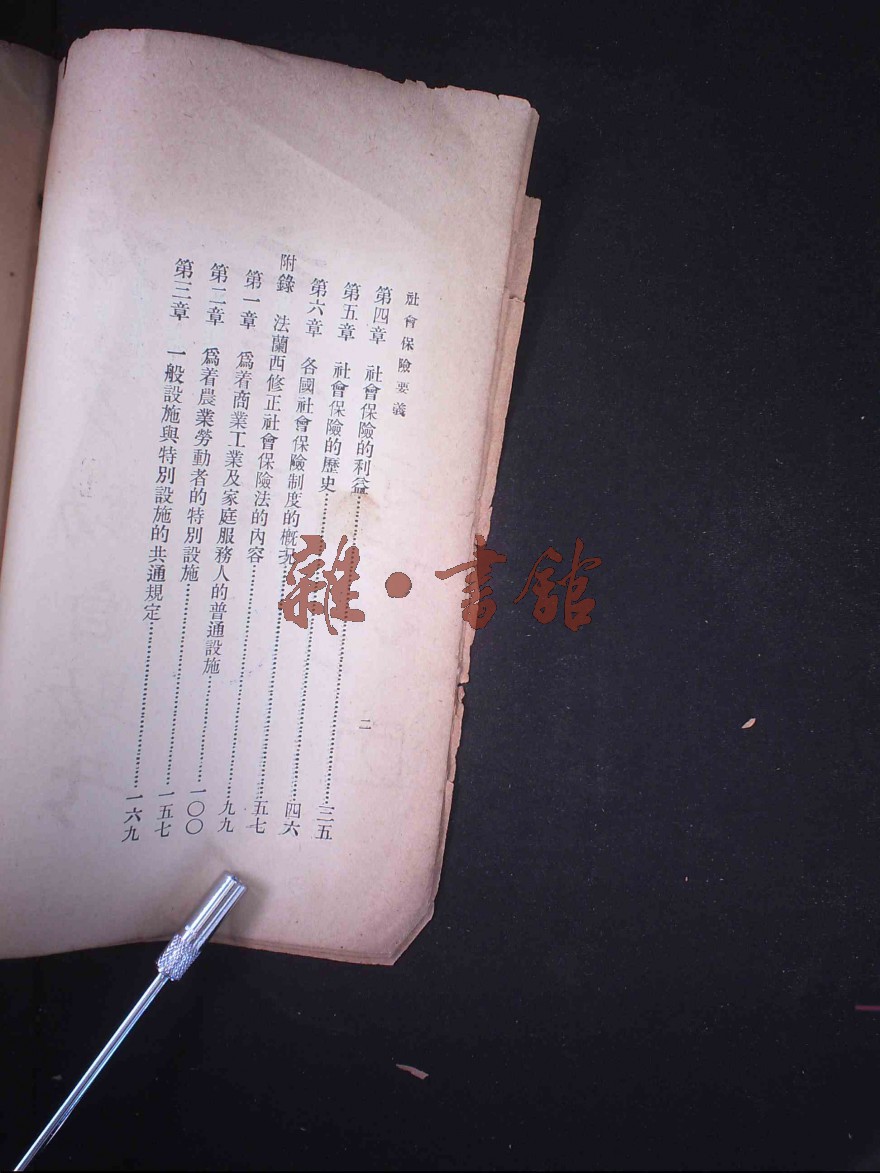 社會保險要義
二
第四章　社會保險的利益……三五
第五章　社會保險的歷史……四六
第六章　各國社會保險制度的概況……五七
附錄　法蘭西修正社會保險法的內容……九九
第一章　爲着商業工業及家庭服務人的普通設施……一〇〇
第二章　爲着農業勞動者的特別設施……一五七
第三章　一般設施與特別設施的共通規定……一六九
雜·書館